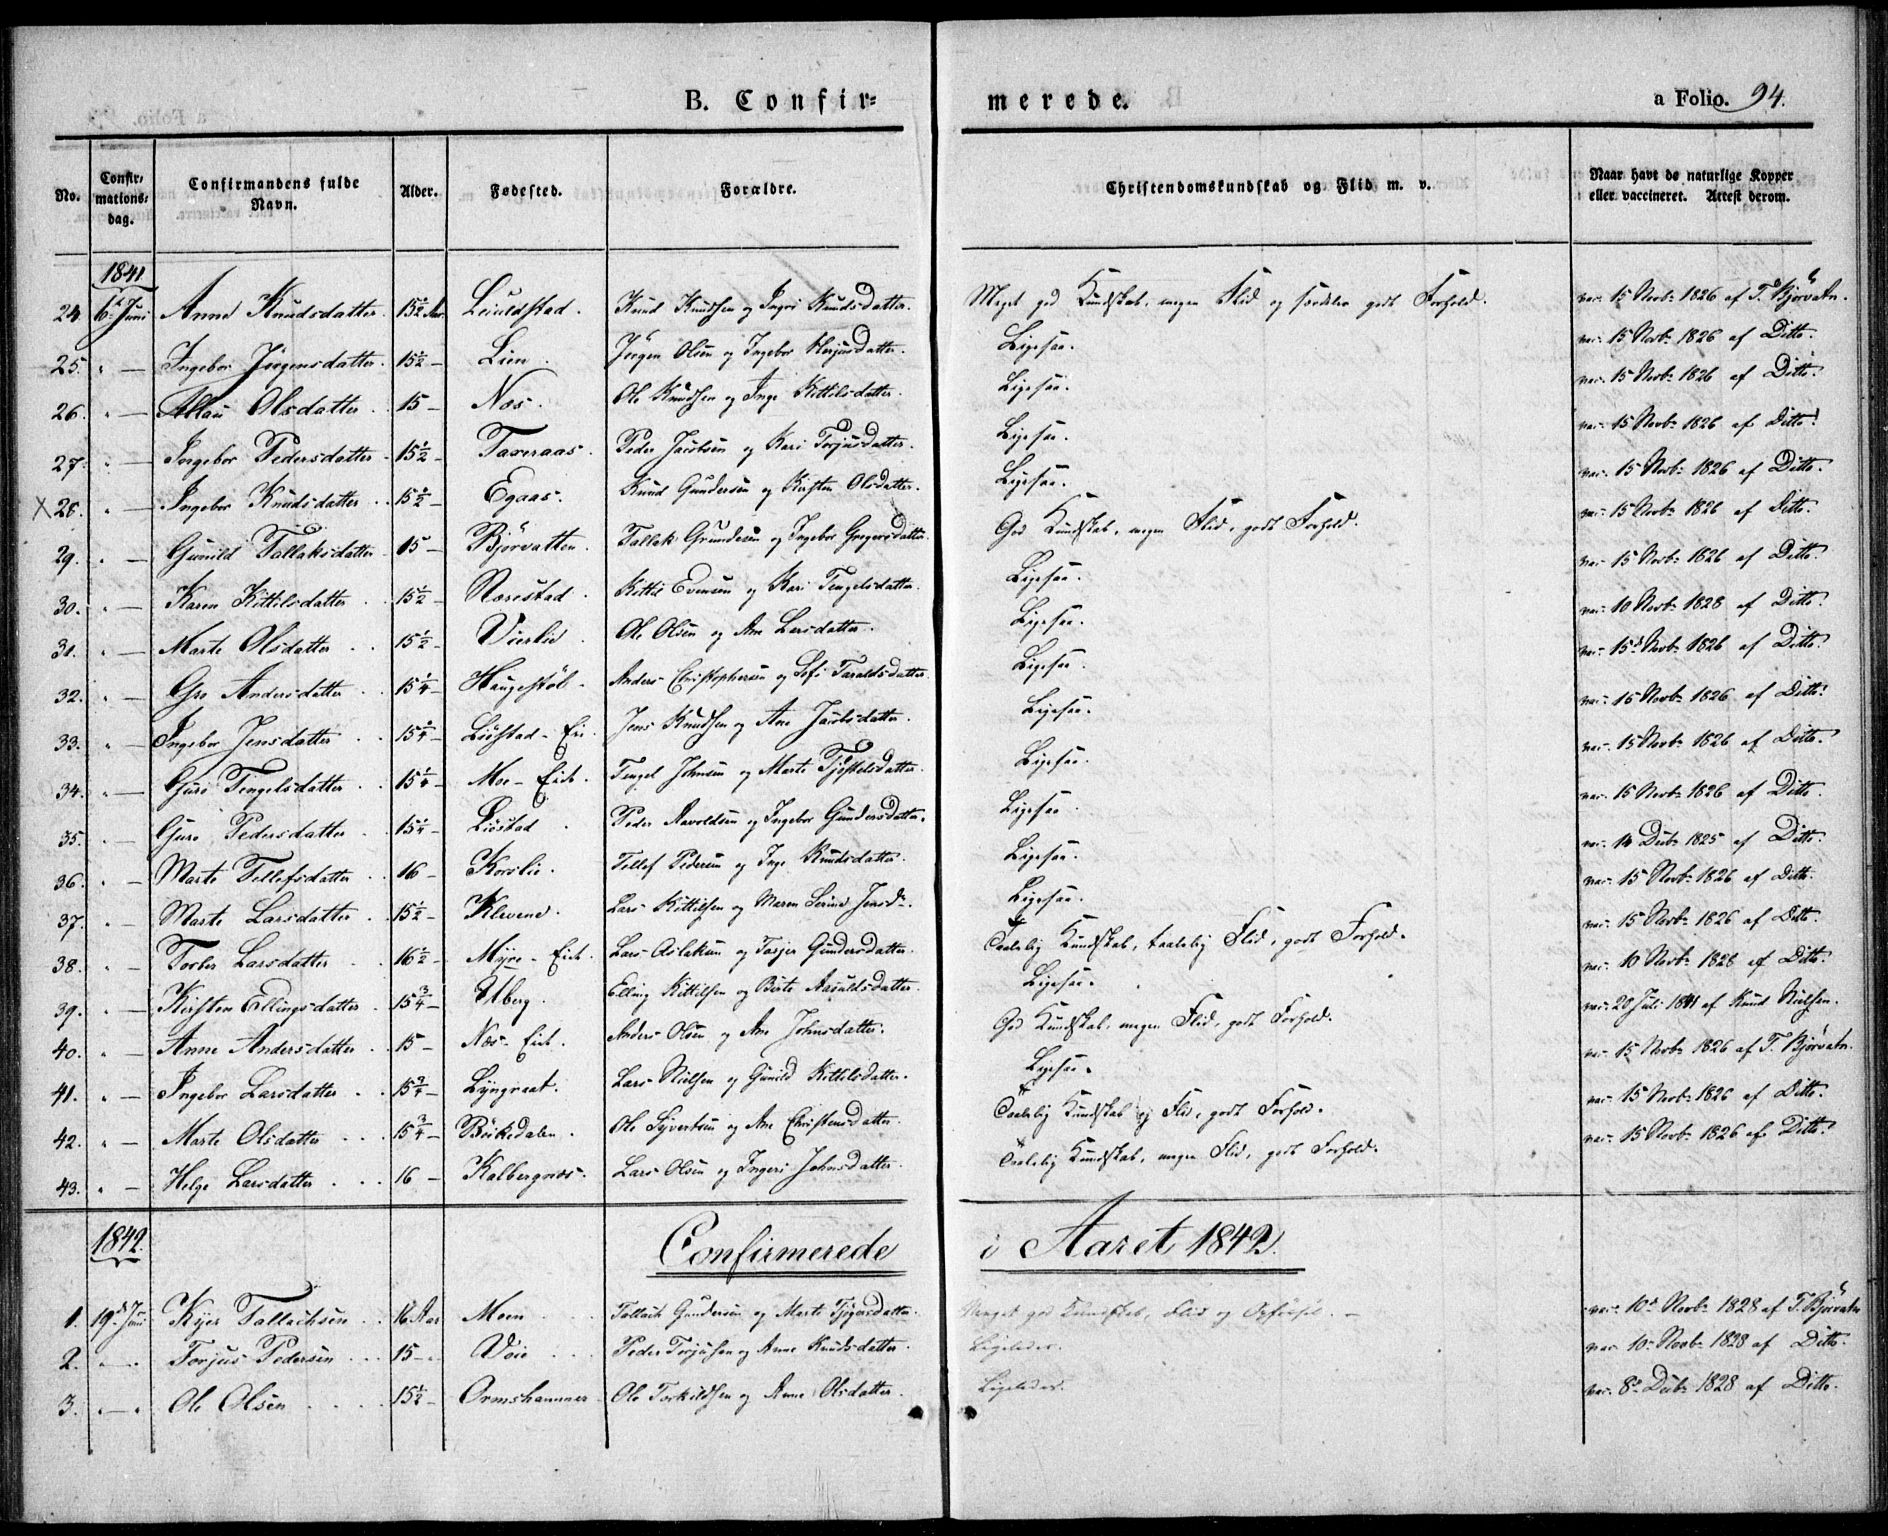 B. Confir= merede. a Folio. 94.
No. Confir- mations- dag. Confirmandens fulde Navn. Alder. Fødested. Forældre. Christendomskundskab og Flid m. v. Naar havt de naturlige Kopper eller vaccineret. Attest derom.
1841
24. 6te Juni Anne Knudsdatter. 15½ Aar. Leiuldstad. Knud Knudsen og Ingri Knudsdatter. Meget god Kundskab, megen Flid og særdeles godt Forhold. vac. 15 Novb: 1826 af T. Bjørvatn.
25. " — Ingebor Jørgensdatter. 15½ — Lien. Jørgen Olsen og Ingebor Herjusdatter. Ligesaa. vac. 15 Novb: 1826 af Ditto.
26. " — Olsdatter. 15 — Nes. Ole Knudsen og Inge Kittilsdatter. Ligesaa. vac. 15 Novb: 1826 af Ditto.
27. " — Ingebor Pedersdatter. 15½ — Taxeraas. Peder Jacobsen og Kari Torjusdatter. Ligesaa. vac. 15 Novb: 1826 af Ditto.
X 28. " — Ingebor Knudsdatter. 15½ — Egaas. Knud Gundersen og Kirsten Olsdatter. Ligesaa. vac. 15 Novb: 1826 af Ditto.
29. " — Gunild Tallaksdatter. 15 — Bjørvatten. Tallak Grundesen og Ingebor Gregersdatter. God Kundskab, megen Flid, godt Forhold. vac. 15 Novb: 1826 af Ditto.
30. " — Karen Kittilsdatter. 15½ — Rærestad. Kittil Evensen og Kari Tengelsdatter. Ligesaa. vac. 15 Novb: 1826 af Ditto.
31. " — Marte Olsdatter. 15½ — Vierlid. Ole Olsen og Ane Larsdatter. Ligesaa. vac. 10 Novb: 1828 af Ditto.
32. " — Gro Andersdatter. 15¼ — Haugestøl. Anders Christophersen og Sofi Taraldsdatter. Ligesaa. vac. 15 Novb: 1826 af Ditto.
33. " — Ingebor Jensdatter. 15¼ — Liøstad - Jens Knudsen og Ane Jacobsdatter. Ligesaa. vac. 15 Novb: 1826 af Ditto.
34. " — Guri Tengelsdatter. 15¼ — Moe - Eich. Tengel Johnsen og Marte Tjøstelsdatter. Ligesaa. vac. 15 Novb: 1826 af Ditto.
35. " — Guro Pedersdatter. 15¼ — Liøstad Peder Aavoldsen og Ingebor Gundersdatter. Ligesaa. vac. 15 Novb: 1826 af Ditto.
36. " — Marte Tellefsdatter. 16 — Korslie. Tellef Pedersen og Inge Knudsdatter. Ligesaa. vac. 14 Decb: 1825 af Ditto.
37. " — Marte Larsdatter. 15½ — Klevene. Lars Kittilsen og Maren Serine Jensdr. Ligesaa. vac. 15 Novb: 1826 af Ditto.
38. " — Torber Larsdatter. 16½ — Myre - Eich. Lars Aslaksen og Tarjer Gundersdatter. Taalelig Kundskab, taalelig Flid, godt Forhold. vac. 15 Novb: 1826 af Ditto.
39. " — Kirsten Ellingsdatter. 15¾ — Uberg. Elling Kittilsen og Birte Aasuldsdatter. Ligesaa. vac. 10 Novb: 1828 af Ditto.
40. " — Anne Andersdatter. 15 — Næs - Eich. Anders Olsen og Ane Johnsdatter. God Kundskab, megen Flid, godt Forhold. vac. 20 Juli 1841 af Knud Nielsen.
41. " — Ingebor Larsdatter. 15¾ — Lyngraat. Lars Nielsen og Gunild Kittilsdatter. Ligesaa. vac. 15 Novb: 1826 af T. Bjørvatn.
42. " — Marte Olsdatter. 15¾ — Bøikedalen. Ole Syvertsen og Ane Christensdatter. Taalelig Kundskab og Flid, godt Forhold. vac. 15 Novb: 1826 af Ditto.
43. " — Helge Larsdatter. 16 — Kalbergnes. Lars Olsen og Ingeri Johnsdatter. Taalelig Kundskab, megen Flid, godt Forhold. vac. 15 Novb: 1826 af Ditto.
1842. Confirmerede i Aaret 1842.
1. 19de Juni Kjer Tallachsen. 16 Aar Moen Tallach Gundersen og Marte Meget god Kundskab, Flid og Opførsel. vac. 10d Novb: 1828 af T. Bjørvatn
2. " — " Torjus Pedersen 15 — Voie Peder Torjusen og Anne Knudsdatter. Ligeledes. vac. 10 Novb: 1828 af Ditto.
3. " — " Ole Olsen 15½ — Ormshammer. Ole Torkildsen og Anne Olsdatter. Ligeledes. vac. 8d Decb: 1828 af Ditto.